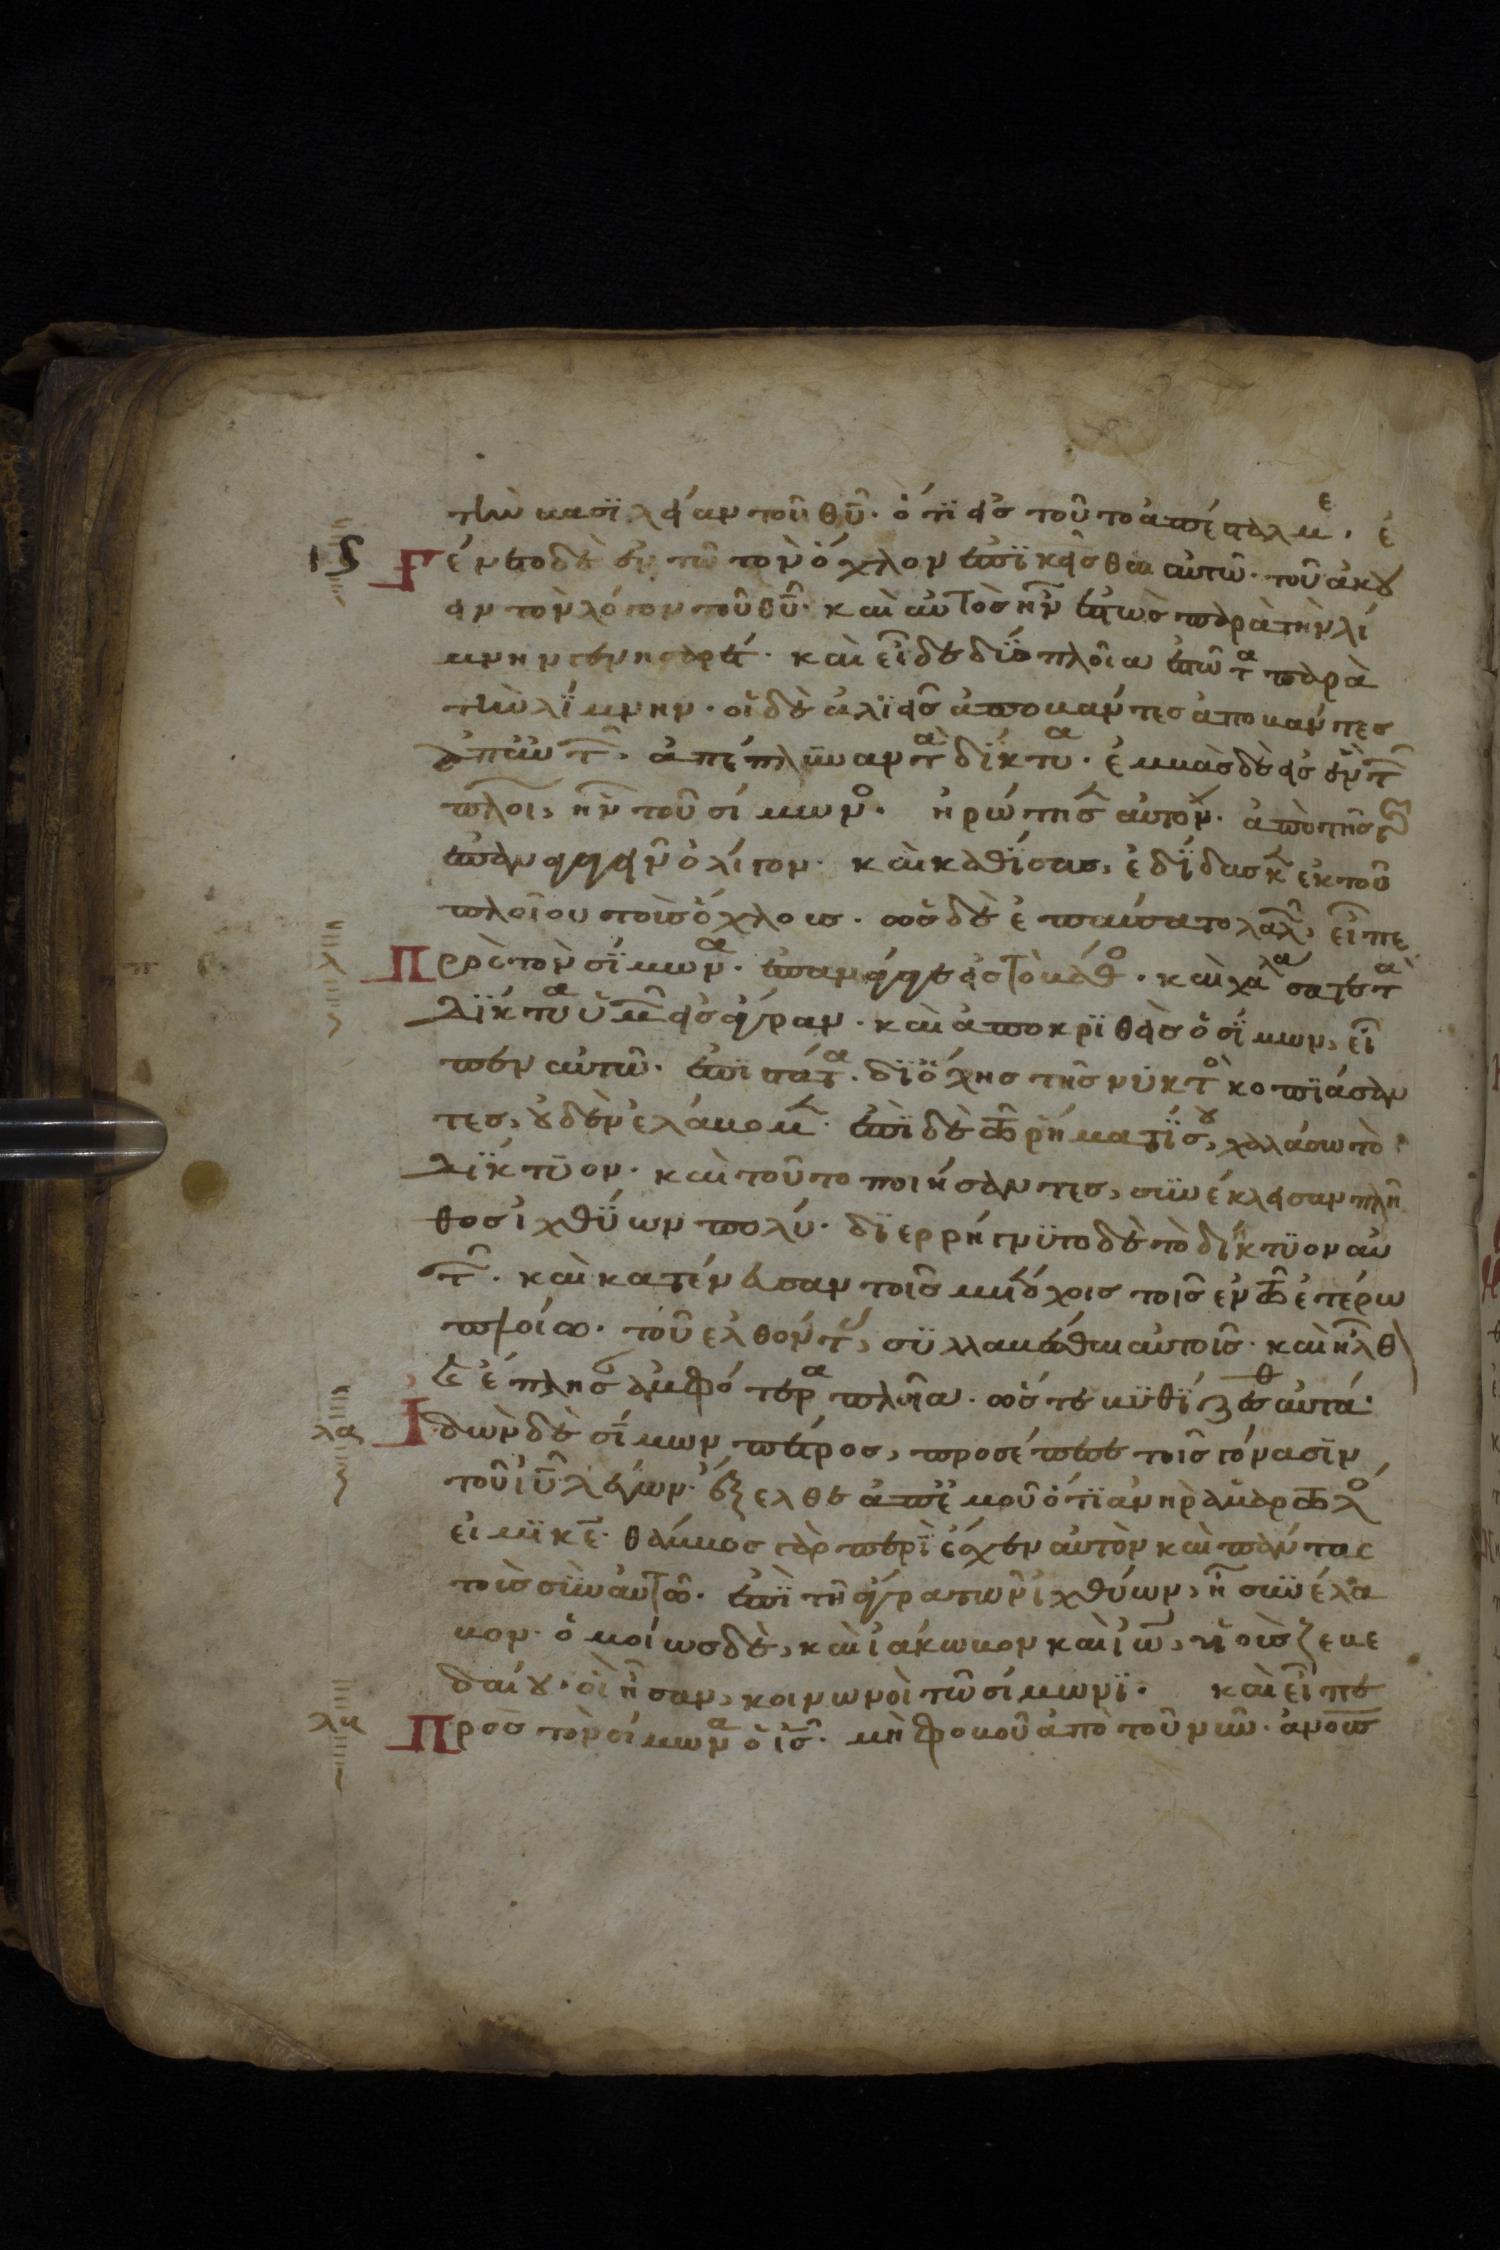 τὴν βασϊλείαν τοῦ θῦ· ὅτϊ εἰς τοῦτο ἀπέσταλμε· ἐ
ιϛ Γένετο δὲ ἐν τῶ τὸν ὄχλον ἐπϊκεῖσθαι αὐτῶ· τοῦ ἀκού
ειν τὸν λόγον τοῦ θῦ· καὶ αὐτὸς ἦν ἑστὼς παρὰ τὴν λί
μνην γενησαρέτ· καὶ εἶδε δύο πλοῖα ἑστῶτα παρὰ
τὴν λίμνην· οἱ δὲ ἁλιεῖς ἀποβάντες ἀποβάντες
ἀπ αὐτ· ἀπέπλυναν τὰ δίκτυα· ἐμβὰς δὲ εἰς ἓν τ
πλοί, ἦν τοῦ σίμωνο· ἠρώτησ αὐτὸν· ἀπὸ τῆς γ
ἐπαναγαγεῖν ὀλίγον· καὶ καθίσας, ἐδίδασκ ἐκ τοῦ
πλοίου τοὺς ὄχλους· ὡς δὲ ἐπαύσατο λαλ, εἶπε
λ Πρὸς τὸν σίμωνα· ἐπανάγαγε εἰς τὸ βάθο· καὶ χαλάσατε τὰ
δίκτυα ὑμ εἰς ἄγραν· καὶ ἀποκριθεὶς ὁ σίμων, εἶ
πεν αὐτῶ· ἐπιστάτα· δι ὅλης τῆς νυκτὸ κοπϊάσαν
τες, οὐδὲν ἐλάβομ· ἐπὶ δὲ τῶ ῥήματί σου, χαλάσω τὸ
δίκτυον· καὶ τοῦτο ποιήσαντες, συνέκλεισαν πλῆ
θος ἰχθύων πολύ· διερρήγνυτο δὲ τὸ δίκτυον αὐ
τ· καὶ κατένευσαν τοῖς μετόχοις τοῖς ἐν τῶ ἑτέρω
πλοίω· τοῦ ἐλθόντ, συλλαβέσθαι αὐτοῖς· καὶ ἦλθ
καὶ ἔπλησ ἀμφότερα πλοῖα· ὥστε βυθίζεσθ αὐτά·
λα Ἰδὼν δὲ σίμων πέτρος, προσέπεσε τοῖς γόνασϊν
τοῦ ἰῦ λέγων· ἔξελθε ἀπ ἐμοῦ ὅτϊ ἀνὴρ ἁμαρτωλό
εἰμι κε· θάμβος γὰρ περιέσχεν αὐτὸν καὶ πάντας
τοὺς σὺν αὐτῶ· ἐπὶ τῆ ἄγρα τῶν ἰχθύων, ἧ συνέλα
βον· ὁμοίως δὲ, καὶ ἰάκωβον καὶ ἰω, υἱοὺς ζεβε
δαίου· οἳ ἦσαν, κοινωνοὶ τῶ σίμωνϊ· καὶ εἶπε
λα Πρὸς τὸν σίμωνα ὁ ἰς· μὴ φοβοῦ ἀπὸ τοῦ νῦν· ἀνους